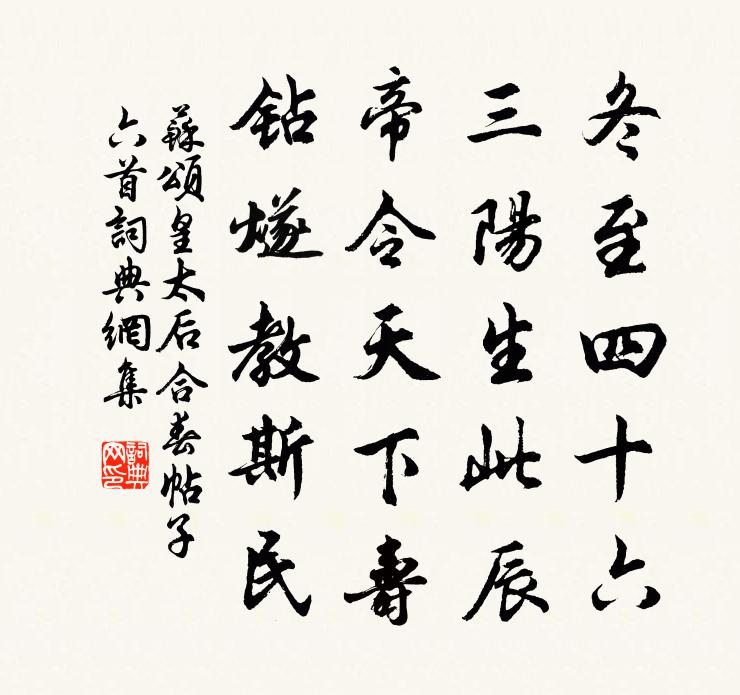 冬至四十六
三陽生此辰
帝令天下壽
钻燧教斯民
蘇頌皇太后合春帖子
六首詞典網集
詞典网印